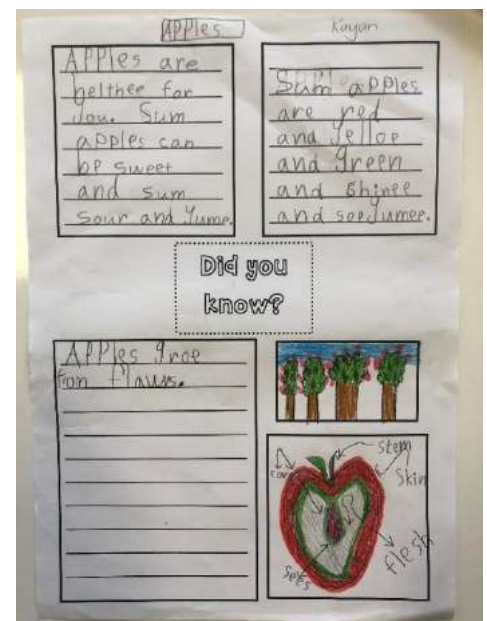 Apples
Kayan
Apples are
helthee for
you. Sum
apples can
be sweet
and sum
sour and yume.
Sum apples
are red
and yelloe
and green
and shinee
and soo Jumee.
Did you
know?
Apples groe
fom flaws.
stem
core
Skin
flesh
seeds